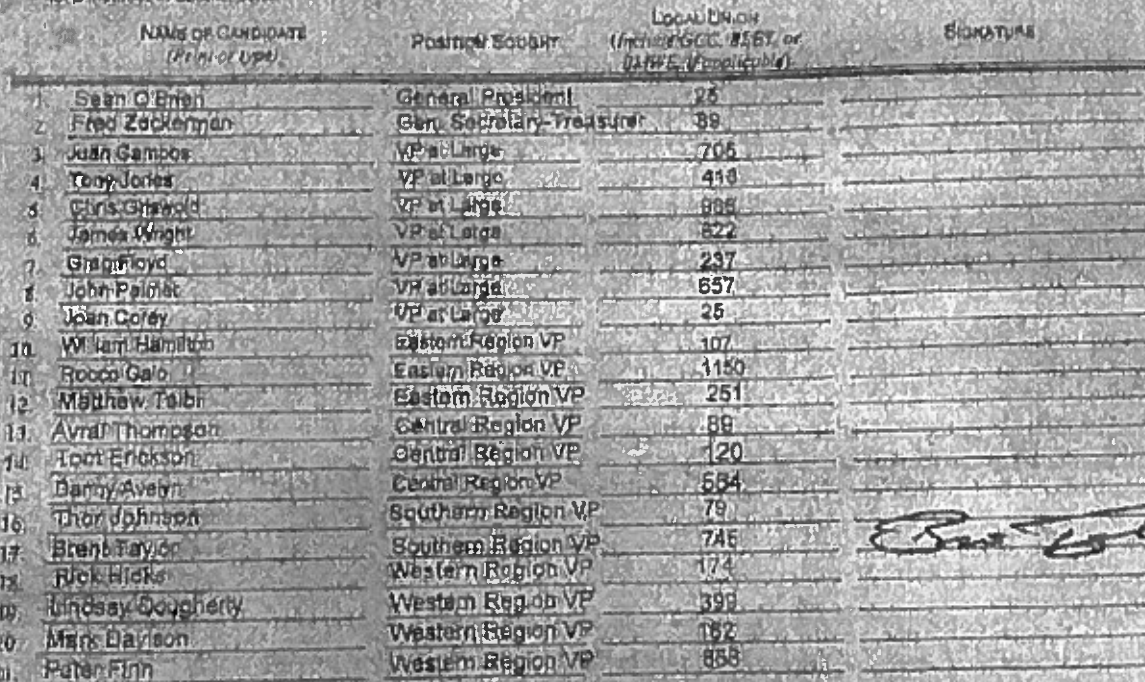 NAME OF CANDIDATE POSITION SOUGHT LOCAL UNION SIGNATURE
(Print or type) (Include GCC, BLET, or
BMWE, if applicable)
1. Sean O'Brien General President 25
2. Fred Zuckerman Gen. Secretary-Treasurer 89
3. Juan Campos VP at Large 705
4. Tony Jones VP at Large 413
5. Chris Griswold VP at Large 986
6. James Wright VP at Large 822
7. Greg Floyd VP at Large 237
8. John Palmer VP at Large 657
9. Joan Corey VP at Large 25
10. William Hamilton Eastern Region VP 107
11. Rocco Calo Eastern Region VP 1150
12. Matthew Taibi Eastern Region VP 251
13. Avral Thompson Central Region VP 89
14. Erickson Central Region VP 120
15. Danny Central Region VP 554
16. Thor Johnson Southern Region VP 79
17. Brent Taylor Southern Region VP 745 Brent Taylor
18. Rick Hicks Western Region VP 174
19. Lindsay Dougherty Western Region VP 399
20. Mark Davison Western Region VP 162
21. Peter Finn Western Region VP 856